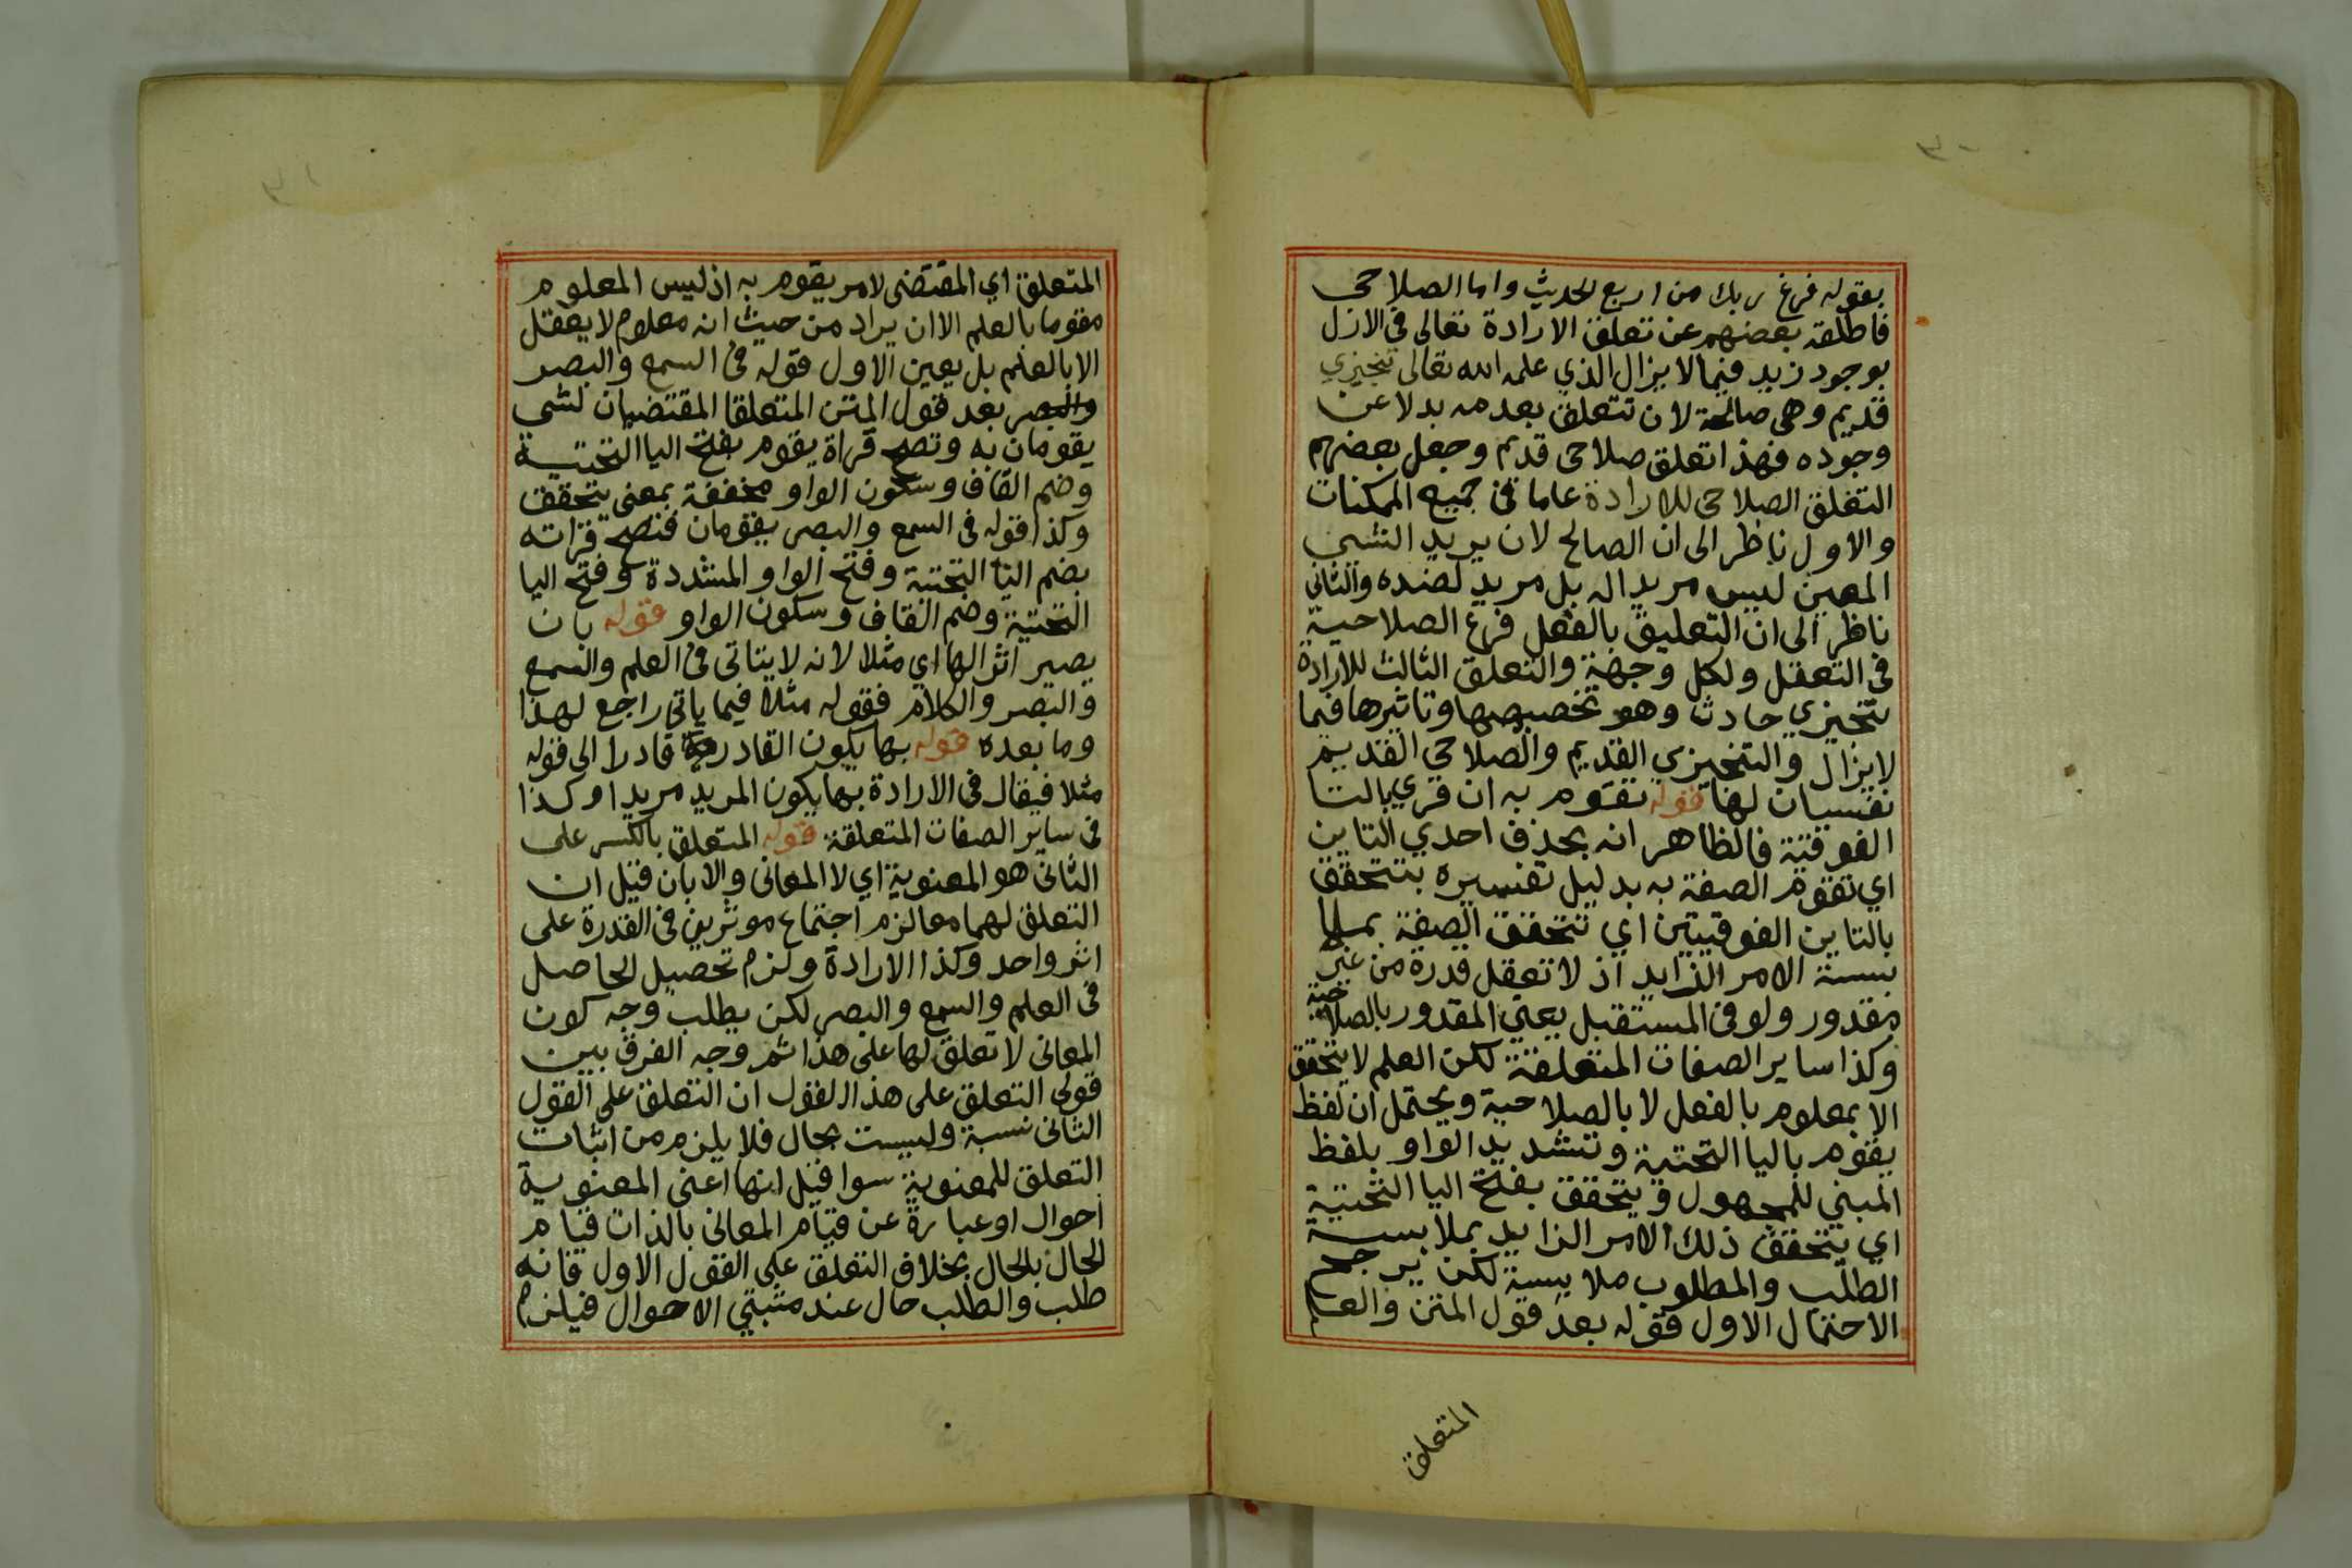 ٣٠
بقوله فرغ ربك من اربع الحديث واما الصلاحي
فاطلقه بعضهم عن تعلق الارادة تعالى في الازل
بوجود زيد فيما لا يزال الذي علمه الله تعالى تنجيزي
قديم وهي صالحة لان تتعلق بعدمه بدلا عن
وجوده فهذا تعلق صلاحى قديم وجعل بعضهم
التعلق الصلاحى للارادة عاما في جميع الممكنات
والاول ناظر الى ان الصالح لان يريد الشي
المعين ليس مريدا له بل مريد لضده والثاني
ناظر الى ان التعليق بالفعل فرع الصلاحية
في التعقل ولكل وجهة والتعلق الثالث للارادة
تنجيزي حادث وهو تخصيصها وتاثيرها فيما
لا يزال والتنجيزي القديم والصلاحي القديم
نفسيان لها قوله تقوم به ان قري بالتا
الفوقية فالظاهر انه بحذف احدي التاين
اي تقوم الصفة به بدليل تفسيره بتتحقق
بالتاين الفوقيتين اي تتحقق الصفة بملا
بسة الامر الزايد اذ لا تعقل قدرة من غير
مقدور ولو في المستقبل يعني المقدور بالصلاحية
وكذا ساير الصفات المتعلقة لكن العلم لا يتحقق
الا بمعلوم بالفعل لا بالصلاحية ويحتمل ان لفظ
يقوم باليا التحتية وتشديد الواو بلفظ
المبني للمجهول ويتحقق بفتح اليا التحتية
اي يتحقق ذلك الامر الزايد بملابسة
الطلب والمطلوب ملابسة لكن يرجح
الاحتمال الاول قوله بعد قول المتن والعلم
المتعلق
٣١
المتعلق اي المقتضى لامر يقوم به اذ ليس المعلوم
مقوما بالعلم الا ان يراد من حيث انه معلوم لا يعقل
الا بالعلم بل يعين الاول قوله في السمع والبصر
والبصر بعد قول المتن المتعلقا المقتضيان لشي
يقومان به وتصح قراة يقوم بفتح اليا التحتية
وضم القاف وسكون الواو مخففة بمعنى يتحقق
وكذا قوله في السمع والبصر يقومان فتصح قراته
بضم اليا التحتية وفتح الواو المشددة وفتح اليا
التحتية وضم القاف وسكون الواو قوله بان
يصير اثرا لها اي مثلا لانه لا يتاتى في العلم والسمع
والبصر والكلام فقوله مثلا فيما ياتي راجع لهذا
وما بعده قوله بها يكون القادر قادرا الى قوله
مثلا فيقال في الارادة بها يكون المريد مريدا وكذا
في ساير الصفات المتعلقة قوله المتعلق بالكسر على
الثاني هو المعنوية اي لا المعاني والا بان قيل ان
التعلق لهما معا لزم اجتماع موثرين في القدرة على
اثر واحد وكذا الارادة ولزم تحصيل الحاصل
في العلم والسمع والبصر لكن يطلب وجه كون
المعاني لا تعلق لها على هذا ثم وجه الفرق بين
قولي التعلق على هذا القول ان التعلق على القول
الثاني نسبة وليست بحال فلا يلزم من اثبات
التعلق للمعنوية سوا قيل انها اعنى المعنوية
احوال او عبارة عن قيام المعاني بالذات قيام
الحال بالحال بخلاف التعلق على القول الاول فانه
طلب والطلب حال عند مثبتي الاحوال فيلزم